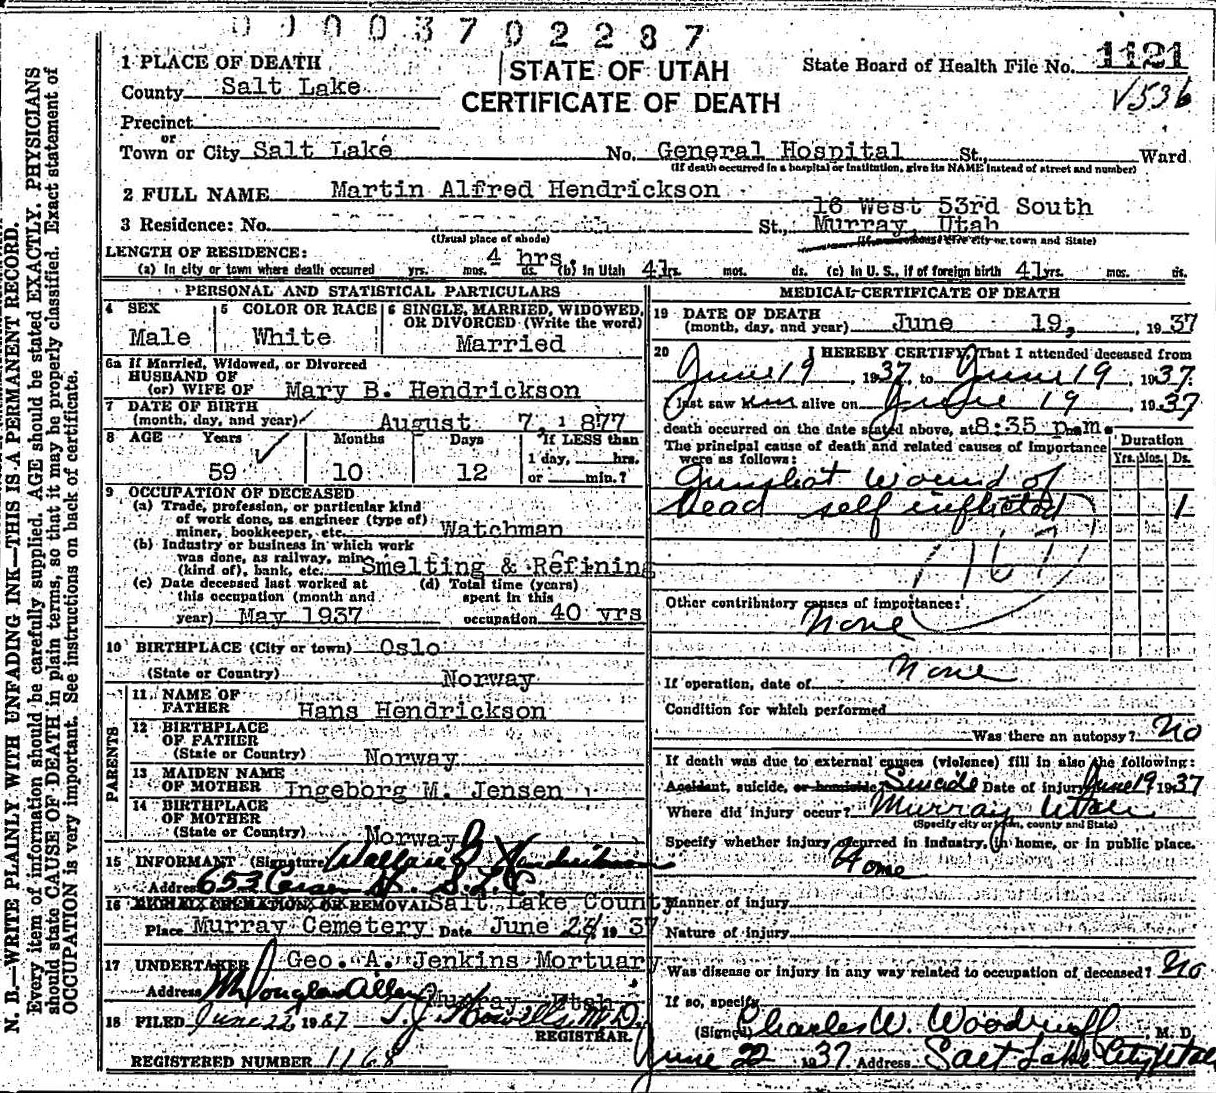 0 0 0 0 3 7 0 2 2 8 7
1 PLACE OF DEATH
STATE OF UTAH
CERTIFICATE OF DEATH
State Board of Health File No. 1121
V536
County Salt Lake
Precinct
or
Town or City Salt Lake No. General Hospital St., Ward
(If death occurred in a hospital or institution, give its NAME instead of street and number)
2 FULL NAME Martin Alfred Hendrickson
16 West 53rd South
3 Residence: No. St., Murray, Utah
(Usual place of abode)
LENGTH OF RESIDENCE: 4 hrs.
(a) In city or town where death occurred yrs. mos. ds. (b) in Utah 41rs. mos. ds. (c) In U. S., if of foreign birth 41yrs. mos. ds.
PERSONAL AND STATISTICAL PARTICULARS
4 SEX Male
5 COLOR OR RACE White
6 SINGLE, MARRIED, WIDOWED, OR DIVORCED (Write the word)
Married
6a If Married, Widowed, or Divorced
HUSBAND OF
(or) WIFE OF Mary B. Hendrickson
7 DATE OF BIRTH
(month, day, and year) August 7, 1877
8 AGE Years Months Days If LESS than
59 10 12 1 day, hrs.
or min.?
9 OCCUPATION OF DECEASED
(a) Trade, profession, or particular kind
of work done, as engineer (type of)
miner, bookkeeper, etc. Watchman
(b) Industry or business in which work
was done, as railway, mine
(kind of), bank, etc. Smelting & Refining
(c) Date deceased last worked at
this occupation (month and
year) May 1937
(d) Total time (years)
spent in this
occupation 40 yrs
10 BIRTHPLACE (City or town) Oslo
(State or Country) Norway
PARENTS
11 NAME OF
FATHER Hans Hendrickson
12 BIRTHPLACE
OF FATHER
(State or Country) Norway
13 MAIDEN NAME
OF MOTHER Ingeborg M. Jensen
14 BIRTHPLACE
OF MOTHER
(State or Country) Norway
15 INFORMANT (Signature) Wallace B Hendrickson
Address 653 St. S.L.C.
16 BURIAL, CREMATION, OR REMOVAL Salt Lake County
Place Murray Cemetery Date June 24, 1937
17 UNDERTAKER Geo. A. Jenkins Mortuary
Address Wm Douglas Allen Murray, Utah
18 FILED June 22 1937 T. J. Howells M.D.
REGISTRAR.
REGISTERED NUMBER 1168
MEDICAL CERTIFICATE OF DEATH
19 DATE OF DEATH
(month, day, and year) June 19, , 1937
20 I HEREBY CERTIFY, That I attended deceased from
June 19, 1937, to June 19, 1937.
I last saw him alive on June 19, 1937
death occurred on the date stated above, at 8:35 p.m.
The principal cause of death and related causes of importance
were as follows:
Duration
Yrs. Mos. Ds.
Gunshot wound of
head self inflicted 1
167
Other contributory causes of importance:
None
None
If operation, date of
Condition for which performed
Was there an autopsy? No
If death was due to external causes (violence) fill in also the following:
Accident, suicide, or homicide? Suicide Date of injury June 19 1937
Where did injury occur? Murray Utah
(Specify city or town, county and State)
Specify whether injury occurred in industry, in home, or in public place.
Home
Manner of injury
Nature of injury
Was disease or injury in any way related to occupation of deceased? No
If so, specify
(Signed) Charles W. Woodruff M. D.
June 22 1937 Address Salt Lake City Utah
N. B.—WRITE PLAINLY WITH UNFADING INK—THIS IS A PERMANENT RECORD.
Every item of information should be carefully supplied. AGE should be stated EXACTLY. PHYSICIANS
should state CAUSE OF DEATH in plain terms, so that it may be properly classified. Exact statement of
OCCUPATION is very important. See instructions on back of certificate.